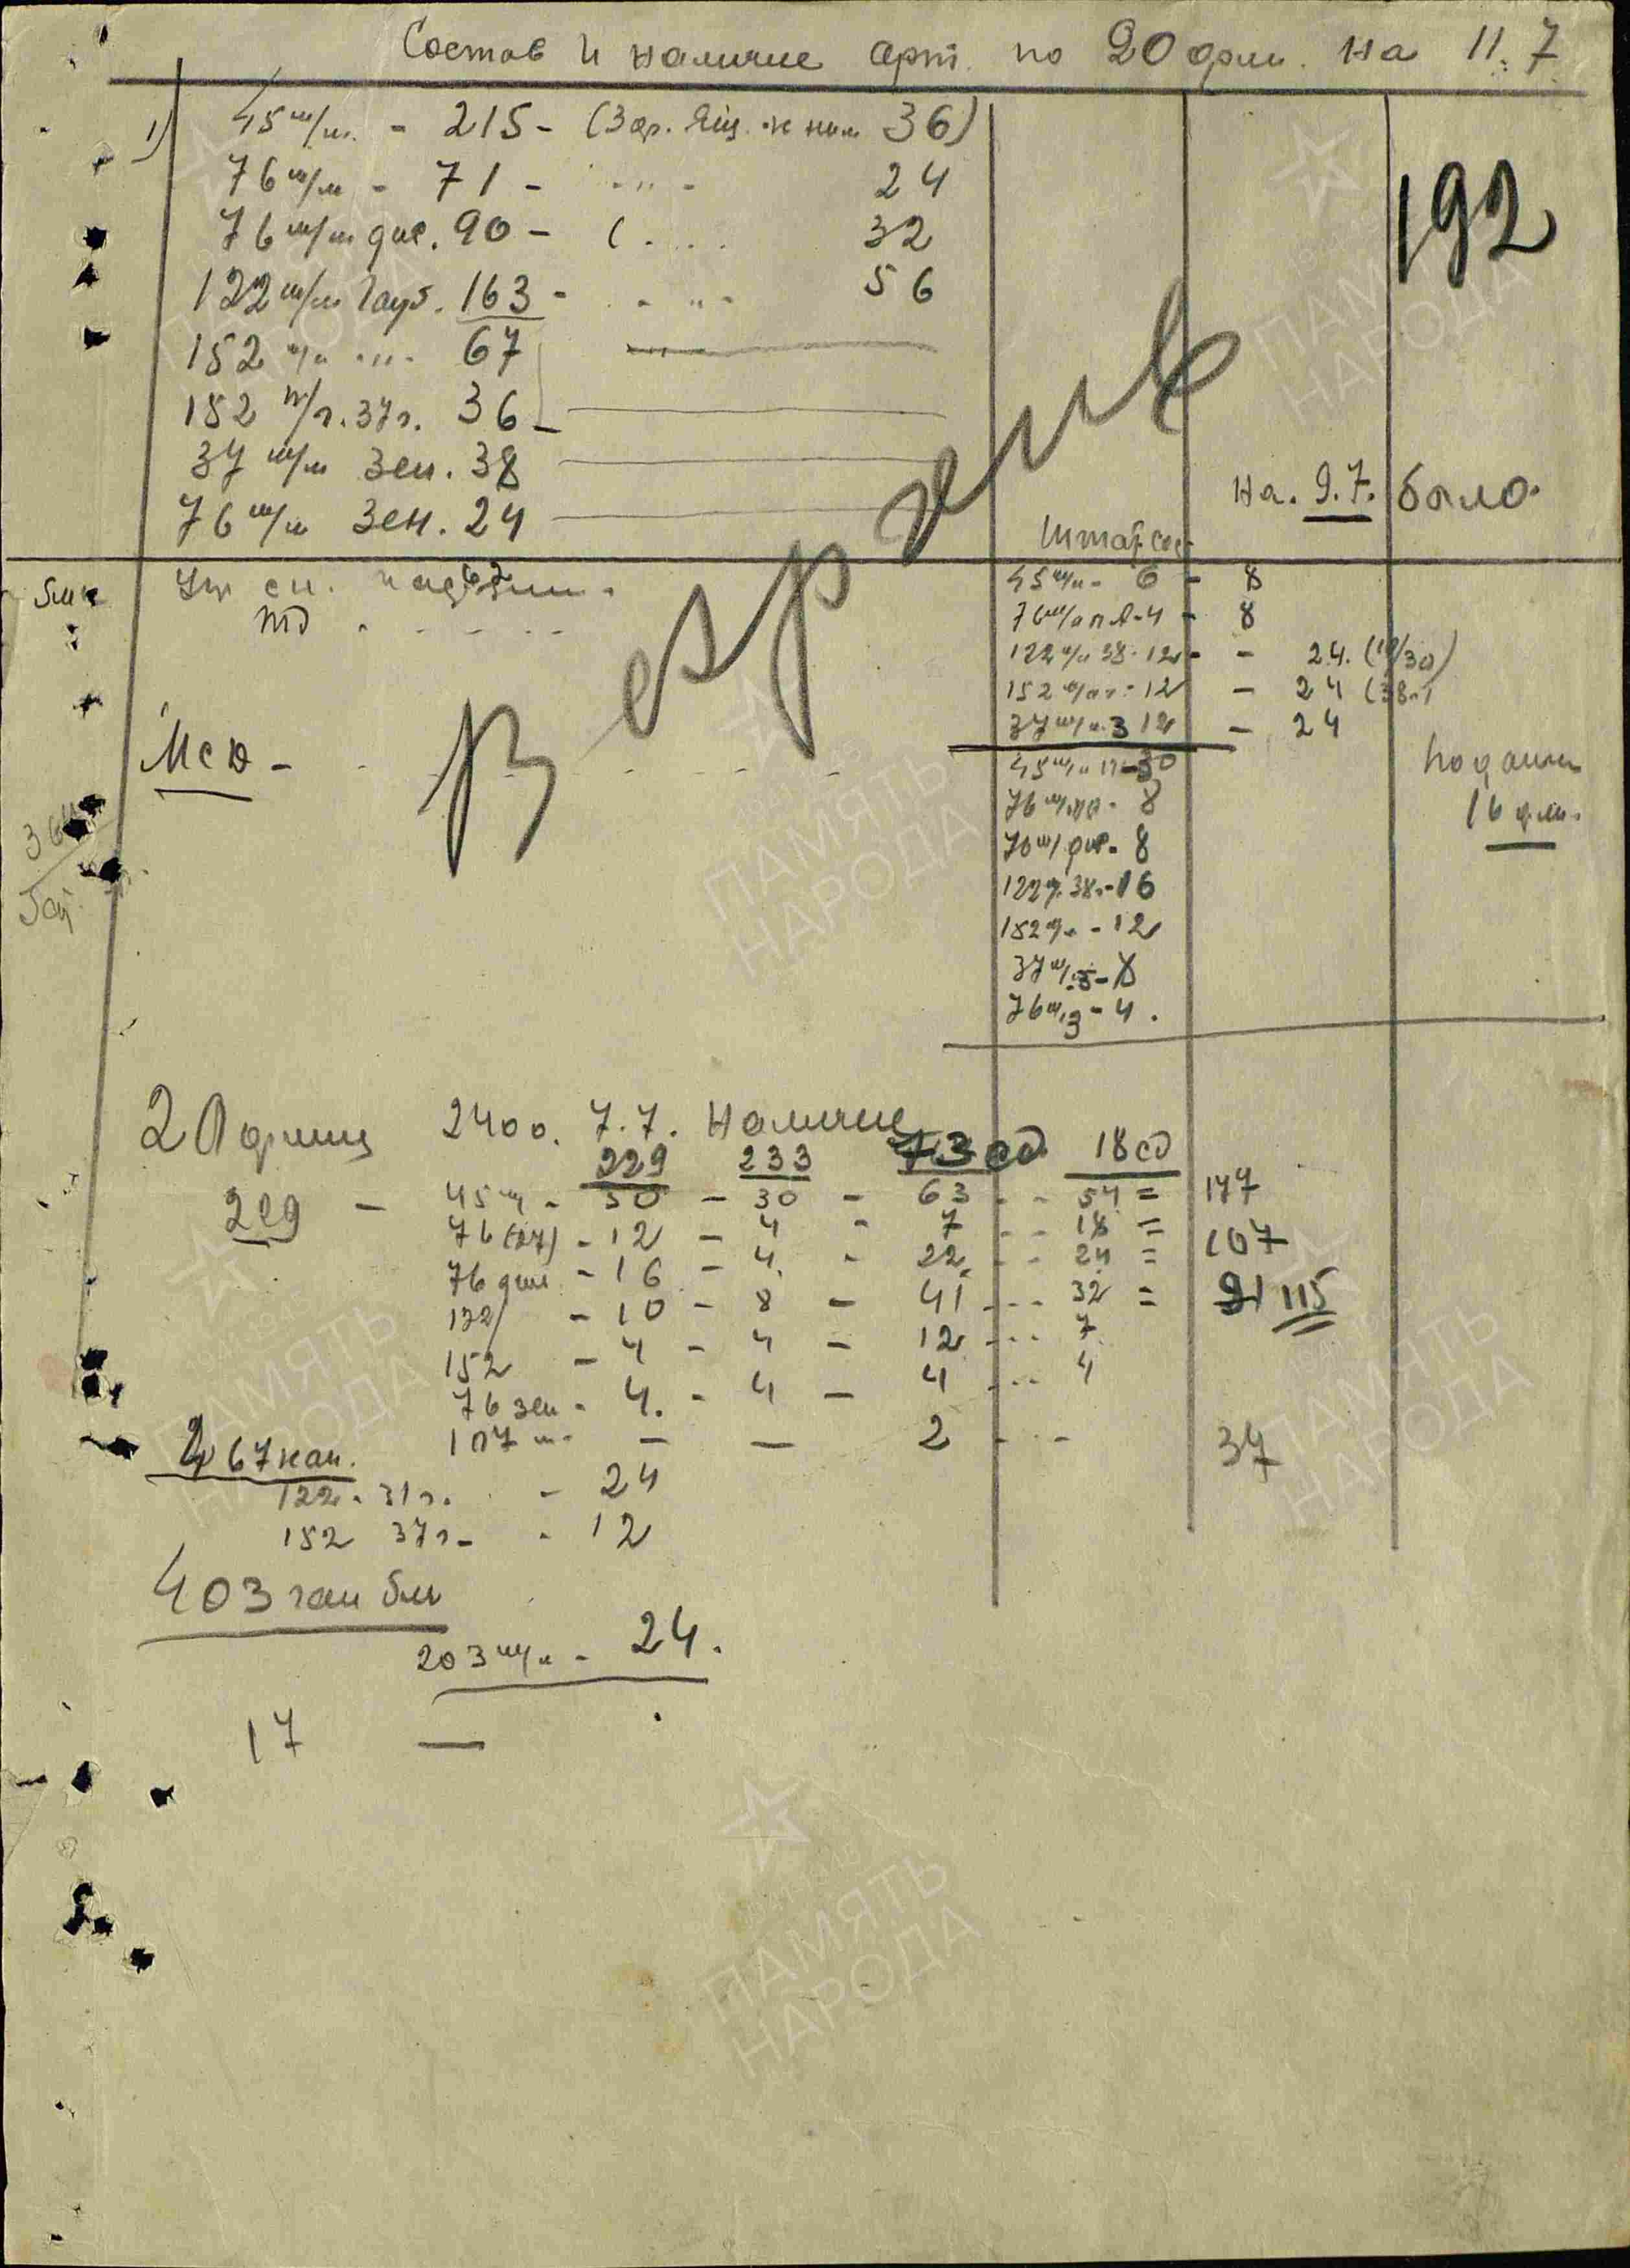 Состав и наличие арт. по 20 арм. на 11.7
192
1) 45 м/м. - 215 - (Зар. Ящ. к ним 36)
76 м/м - 71 - -"- 24
76 м/м див. 90 - ( . . . . 32
122 м/м Гауб. 163 - - " - 56
152 м/м -"- 67
152 п/г. 37 г. 36
37 м/м Зен. 38
76 м/м Зен. 24
Резерв
На. 9.7. было
Штат
5 мк
тд
45 м/м - 6 - 8
76 м/м п А - 4 - 8
122 м/м 38 - 12 - - 24.
152 м/м - 12 - 24
37 м/м з 12 - 24
Мсд -
45 м/м - 30
76 м/м - 8
76 м/ див - 8
122 38 - 16
152 - 12
37 м/з - 8
76 м/з - 4.
подани
16 арм.
20 армии 2400. 7.7. Наличие
229 233 73 сд 18 сд
229 - 45 - 30 - 30 - 63 - - 54 = 177
76 (27) - 12 - 4 - 7 - - 18 = 107
76 див - 16 - 4. - 22. - - 24 =
122 - 10 - 8 - 41 - - - 32 = 91 115
152 - 4 - 4 - 12 - - - 7
76 зен - 4. - 4 - 4 - - - 4
107 - - - 2 - - - 37
267 кап.
122 - 31 г. - 24
152 37 г - - 12
403 гап бм
203 м/м - 24.
17 —